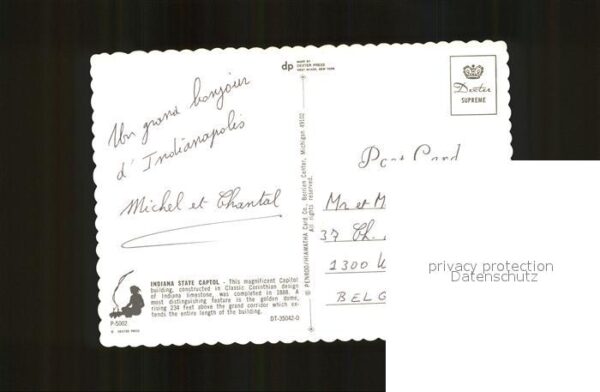 dp MADE BY
DEXTER PRESS
WEST NYACK, NEW YORK
Dexter
SUPREME
Un grand bonjour
d'Indianapolis
Michel et Chantal
Post Card
Mr et M
37 Ch.
1300 W
BELG
privacy protection
Datenschutz
© PENROD/HIAWATHA Card Co., Berrien Center, Michigan 49102
All rights reserved.
INDIANA STATE CAPTOL - This magnificent Capitol
building, constructed in Classic Corinthian design
of Indiana limestone, was completed in 1888. A
most distinguishing feature is the golden dome,
rising 234 feet above the grand corridor which ex-
tends the entire length of the building.
P-5002
DT-35042-D
© DEXTER PRESS